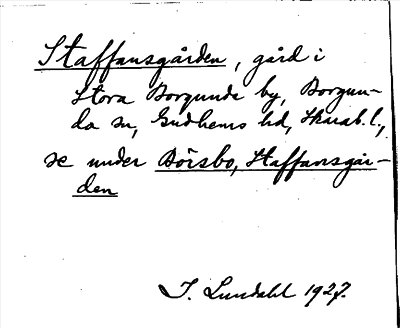 Staffansgården, gård i
Stora Borgunda by, Borgun-
da sn, Gudhems hd, Skarab. l.,
se under Börsbo, Staffansgår-
den
I. Lundahl 1927.